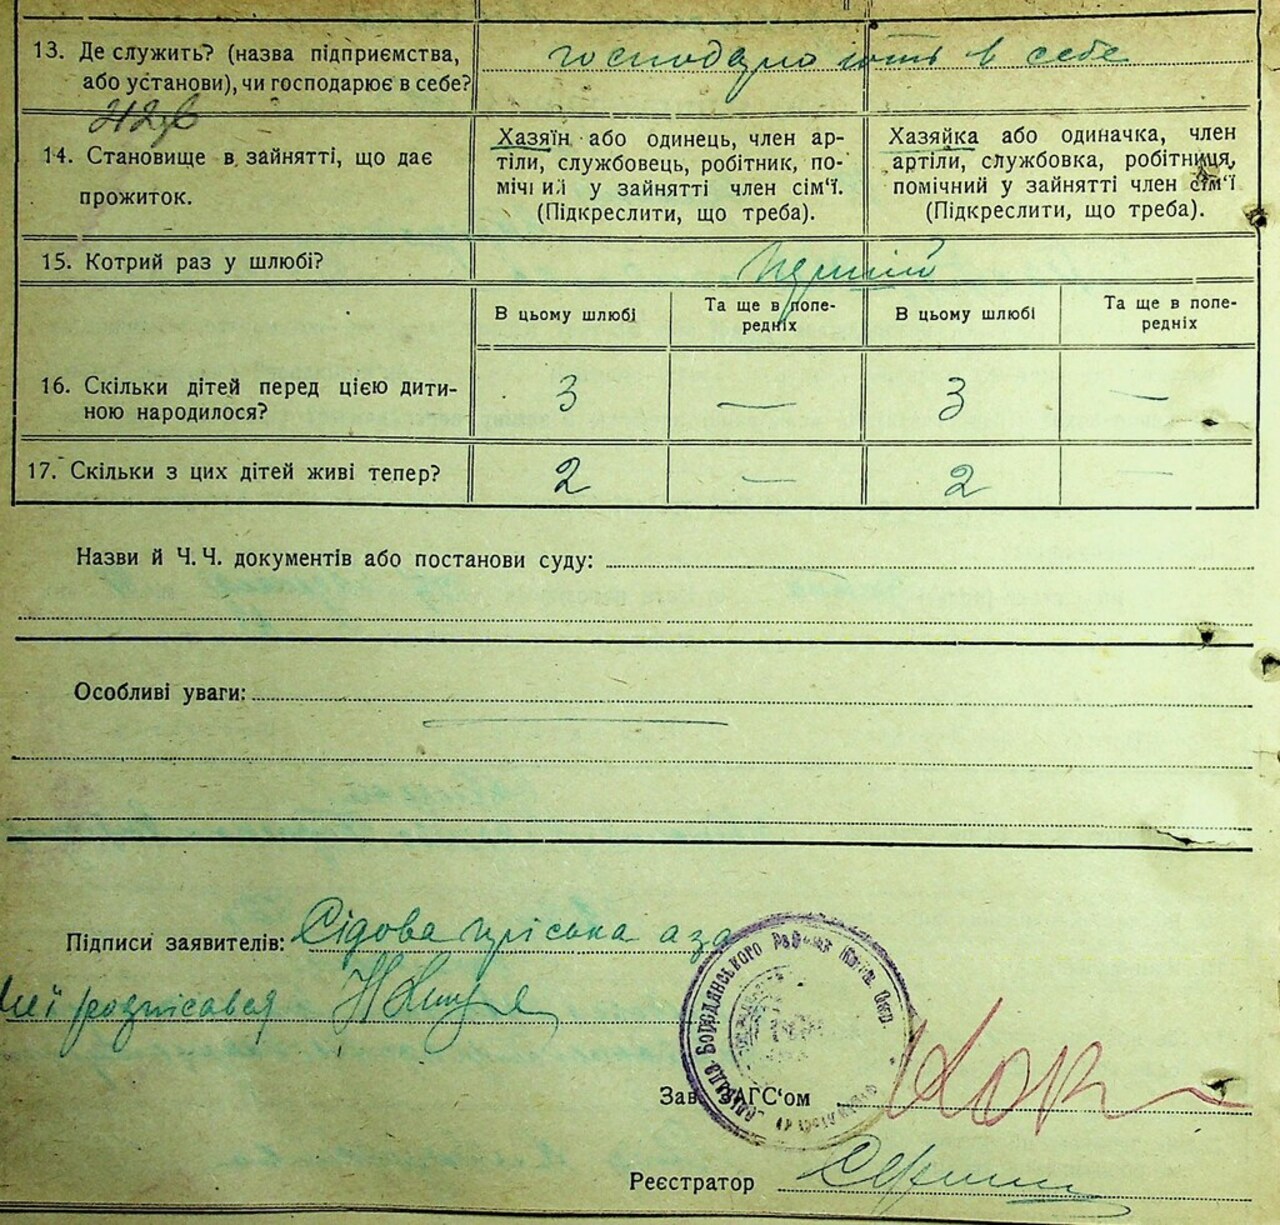 13. Де служить? (назва підприємства, або установи), чи господарює в себе?
господарюють в себе
14. Становище в зайнятті, що дає прожиток.
Хазяїн або одинець, член ар-
тілі, службовець, робітник, по-
мічний у зайнятті член сім'ї.
(Підкреслити, що треба).
Хазяйка або одиначка, член
артілі, службовка, робітниця,
помічний у зайнятті член сім'ї
(Підкреслити, що треба).
15. Котрий раз у шлюбі?
Перший
В цьому шлюбі
Та ще в попе-
редніх
В цьому шлюбі
Та ще в попе-
редніх
16. Скільки дітей перед цією дити-
ною народилося?
3 — 3 —
17. Скільки з цих дітей живі тепер?
2 — 2 —
Назви й Ч. Ч. документів або постанови суду:
Особливі уваги:
Підписи заявителів: Сідова
розписався
Бородянського
Зав. ЗАГС'ом
Реєстратор